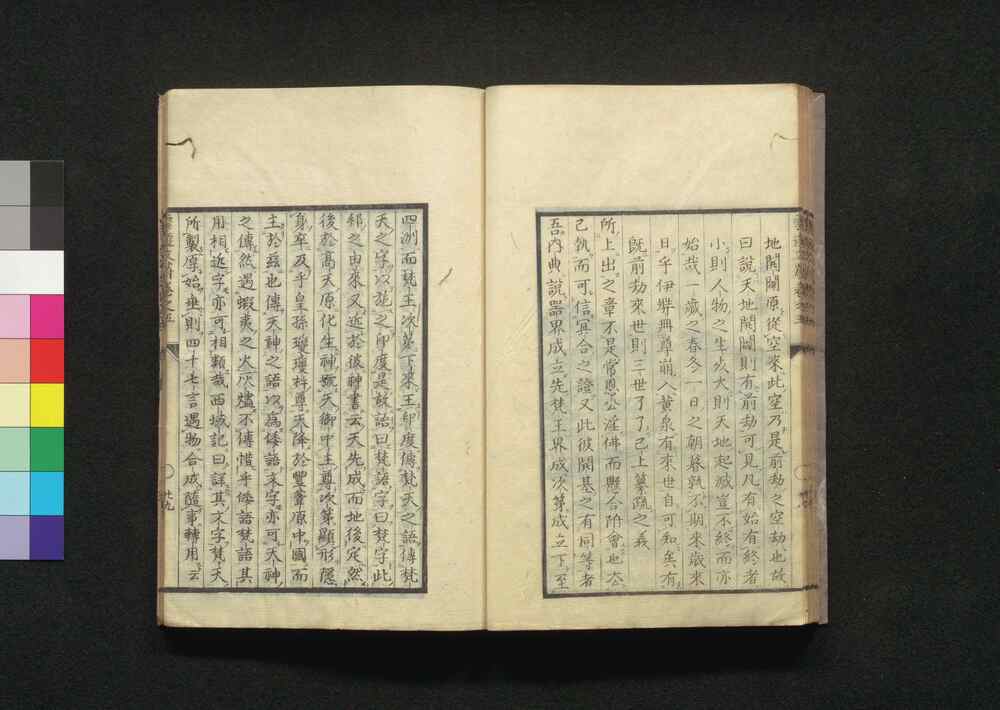 地開闢原從空來此空乃是前劫之空劫也故
曰說天地開闢則有前劫可見凡有始有終者
小則人物之生死大則天地起滅豈不終而亦
始哉一歲之春冬一日之朝暮孰不期來歲來
日乎伊弉冉尊崩入黃泉有來世自可知矣有
既前劫來世則三世了了已上纂疏之義
所上出之章不是常恩公淫佛而縣合附會也太
已執而可信冥合之證又此彼開基之有同等者
吾內典說器界成立先梵王界成次第成立下至
四洲而梵王次第下來王印度傳梵天之語傳梵
天之字以施之印度是故語曰梵語字曰梵字此
邦之由來又近於彼神書云天先成而地後定然
後於高天原化生神號天御中主尊次第顯形隱
身卒及乎皇孫瓊瓊杵尊天降於豐葦原中國而
主於茲也傳天神之語以為倭語末字亦可天神
之傳然遇蝦夷之火灰燼不傳惜乎倭語梵語其
用相近字亦可相類哉西域記曰詳其文字梵天
所製原始垂則四十七言遇物合成隨事轉用云
廿九